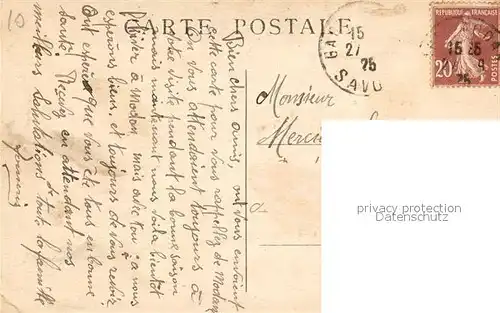 CARTE POSTALE
10
Bien chers amis, ont vous envoient
cette carte pour vous rappelez de Modane
On vous attendaient toujours à
votre visite pendant la bonne saison
mais maintenant nous voila bientôt
l'hiver à Modane mais avec tou à nous
espérons bien. et toujours de vous revoir
Ont espère que vous ète tous en bonne
santé. Recevez en attendant nos
meilleurs Salutations de toute la famille
Monsieur
à
15
27
25
SAVO
REPUBLIQUE FRANÇAISE
20
POSTES
15 25
9
25
privacy protection
Datenschutz